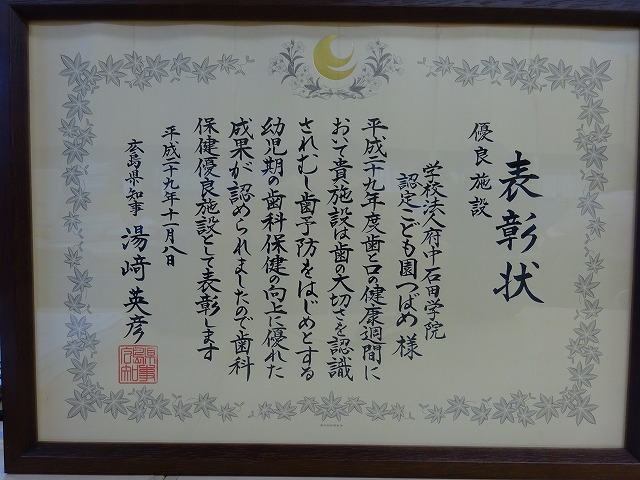 表彰状
優良施設
学校法人府中石田学院
認定こども園つばめ 様
平成二十九年度歯と口の健康週間に
おいて貴施設は歯の大切さを認識
されむし歯予防をはじめとする
幼児期の歯科保健の向上に優れた
成果が認められましたので歯科
保健優良施設として表彰します
平成二十九年十一月八日
広島県知事 湯﨑英彦
広島県知事